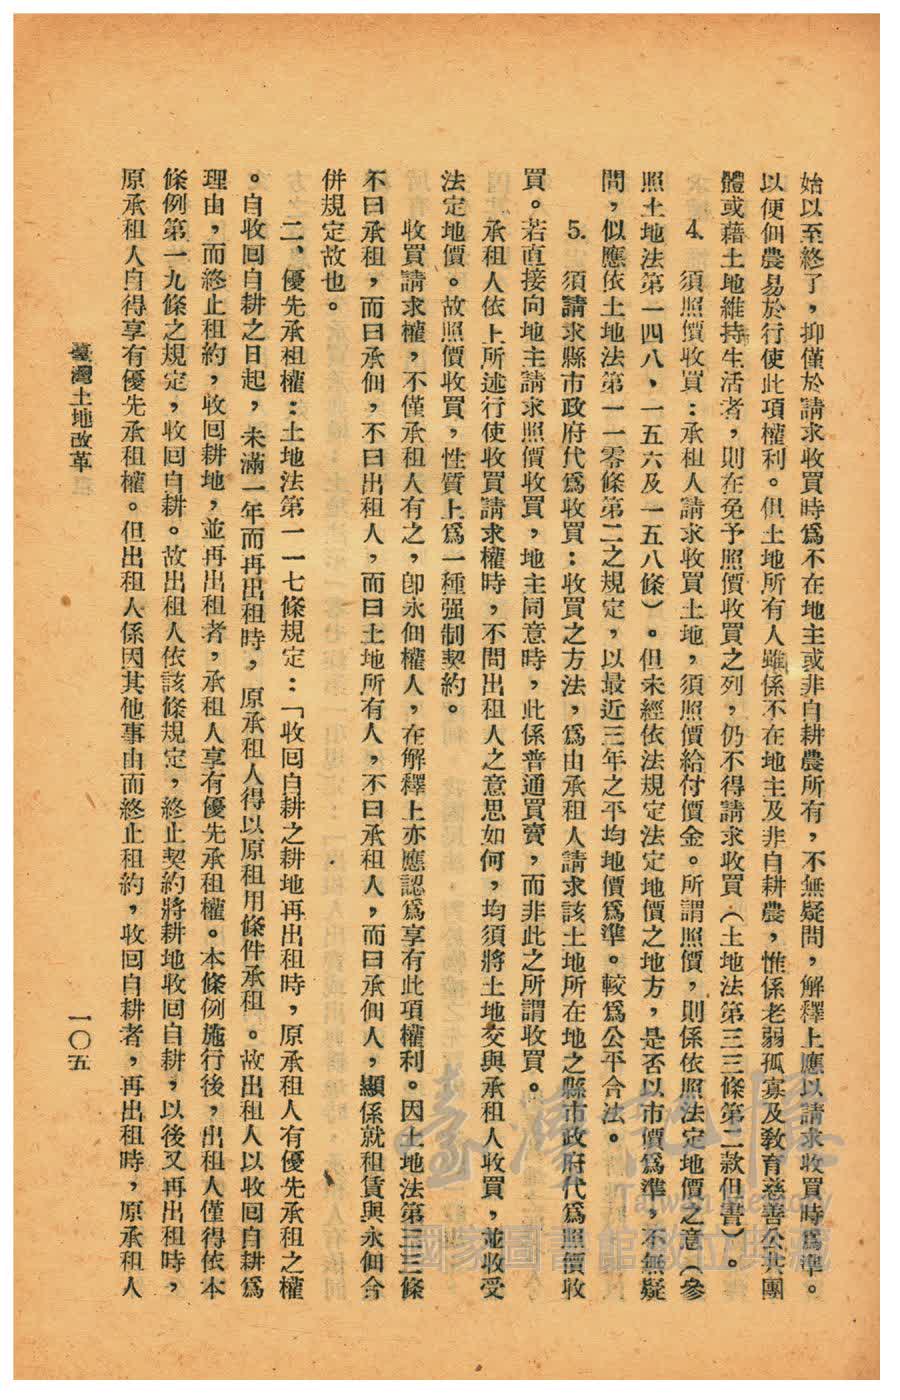 始以至終了，抑僅於請求收買時爲不在地主或非自耕農所有，不無疑問，解釋上應以請求收買時爲準。
以便佃農易於行使此項權利。但土地所有人雖係不在地主及非自耕農，惟係老弱孤寡及教育慈善公共團
體或藉土地維持生活者，則在免予照價收買之列，仍不得請求收買（土地法第三三條第二款但書）。
4. 須照價收買：承租人請求收買土地，須照價給付價金。所謂照價，則係依照法定地價之意（參
照土地法第一四八、一五六及一五八條）。但未經依法規定法定地價之地方，是否以市價爲準，不無疑
問，似應依土地法第一一零條第二之規定，以最近三年之平均地價爲準。較爲公平合法。
5. 須請求縣市政府代爲收買：收買之方法，爲由承租人請求該土地所在地之縣市政府代爲照價收
買。若直接向地主請求照價收買，地主同意時，此係普通買賣，而非此之所謂收買。
承租人依上所述行使收買請求權時，不問出租人之意思如何，均須將土地交與承租人收買，並收受
法定地價。故照價收買，性質上爲一種强制契約。
收買請求權，不僅承租人有之，卽永佃權人，在解釋上亦應認爲享有此項權利。因土地法第三三條
不曰承租，而曰承佃，不曰出租人，而曰土地所有人，不曰承租人，而曰承佃人，顯係就租賃與永佃合
併規定故也。
二、優先承租權：土地法第一一七條規定：「收囘自耕之耕地再出租時，原承租人有優先承租之權
。自收囘自耕之日起，未滿一年而再出租時，原承租人得以原租用條件承租。故出租人以收囘自耕爲
理由，而終止租約，收囘耕地，並再出租者，承租人享有優先承租權。本條例施行後，出租人僅得依本
條例第一九條之規定，收囘自耕。故出租人依該條規定，終止契約將耕地收囘自耕，以後又再出租時，
原承租人自得享有優先承租權。但出租人係因其他事由而終止租約，收囘自耕者，再出租時，原承租人
臺灣土地改革
一〇五
臺灣記憶
Taiwan Memory
國家圖書館數位典藏